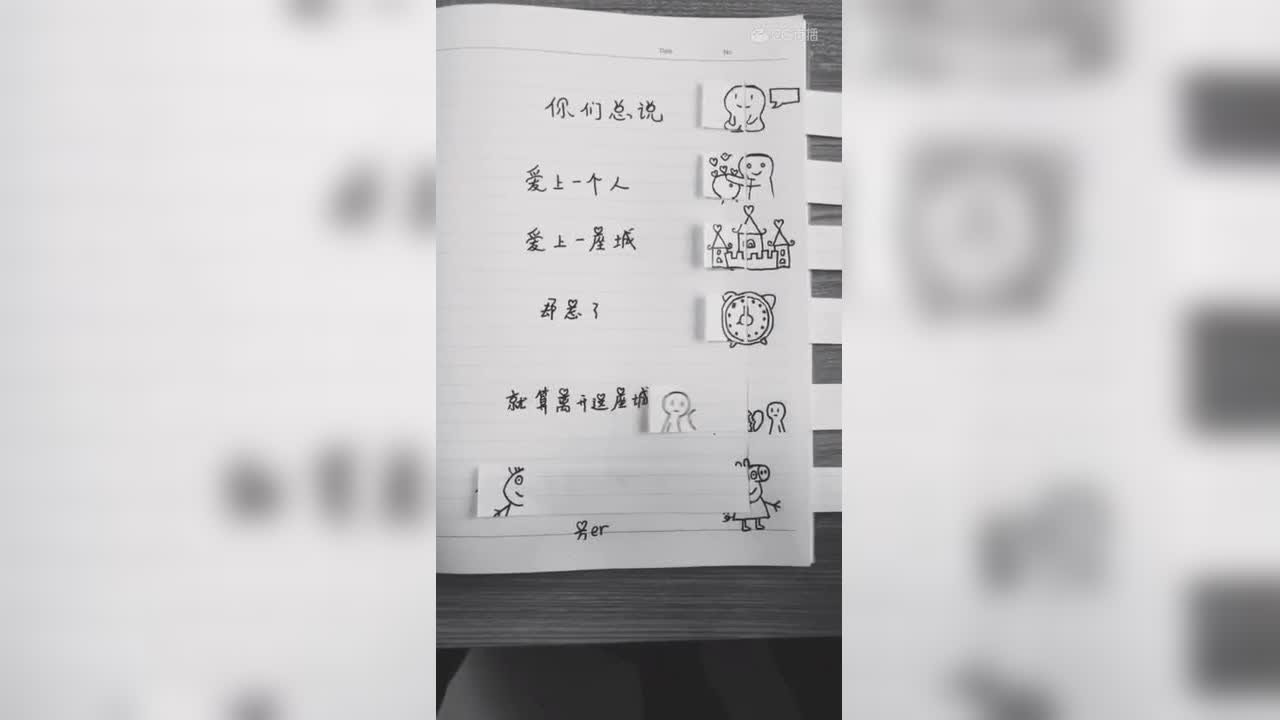 Date No
你们总说
爱上一个人
爱上一座城
却忘了
就算离开这座城
er